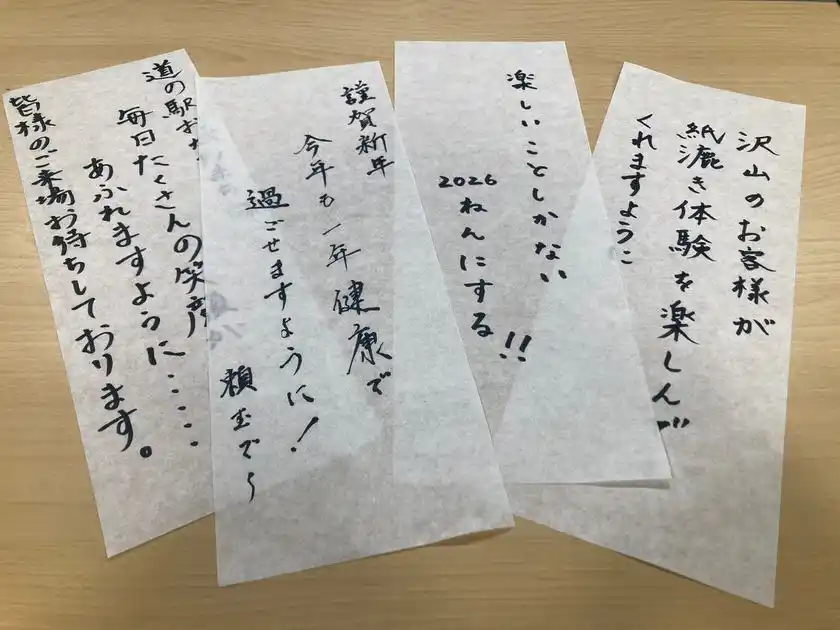 沢山のお客様が
紙漉き体験を楽しんで
くれますように
楽しいことしかない
2026ねんにする!!
謹賀新年
今年も一年健康で
過ごせますように!
道の駅お
毎日たくさんの笑顔
あふれますように・・・・
皆様のご来場お待ちしております。